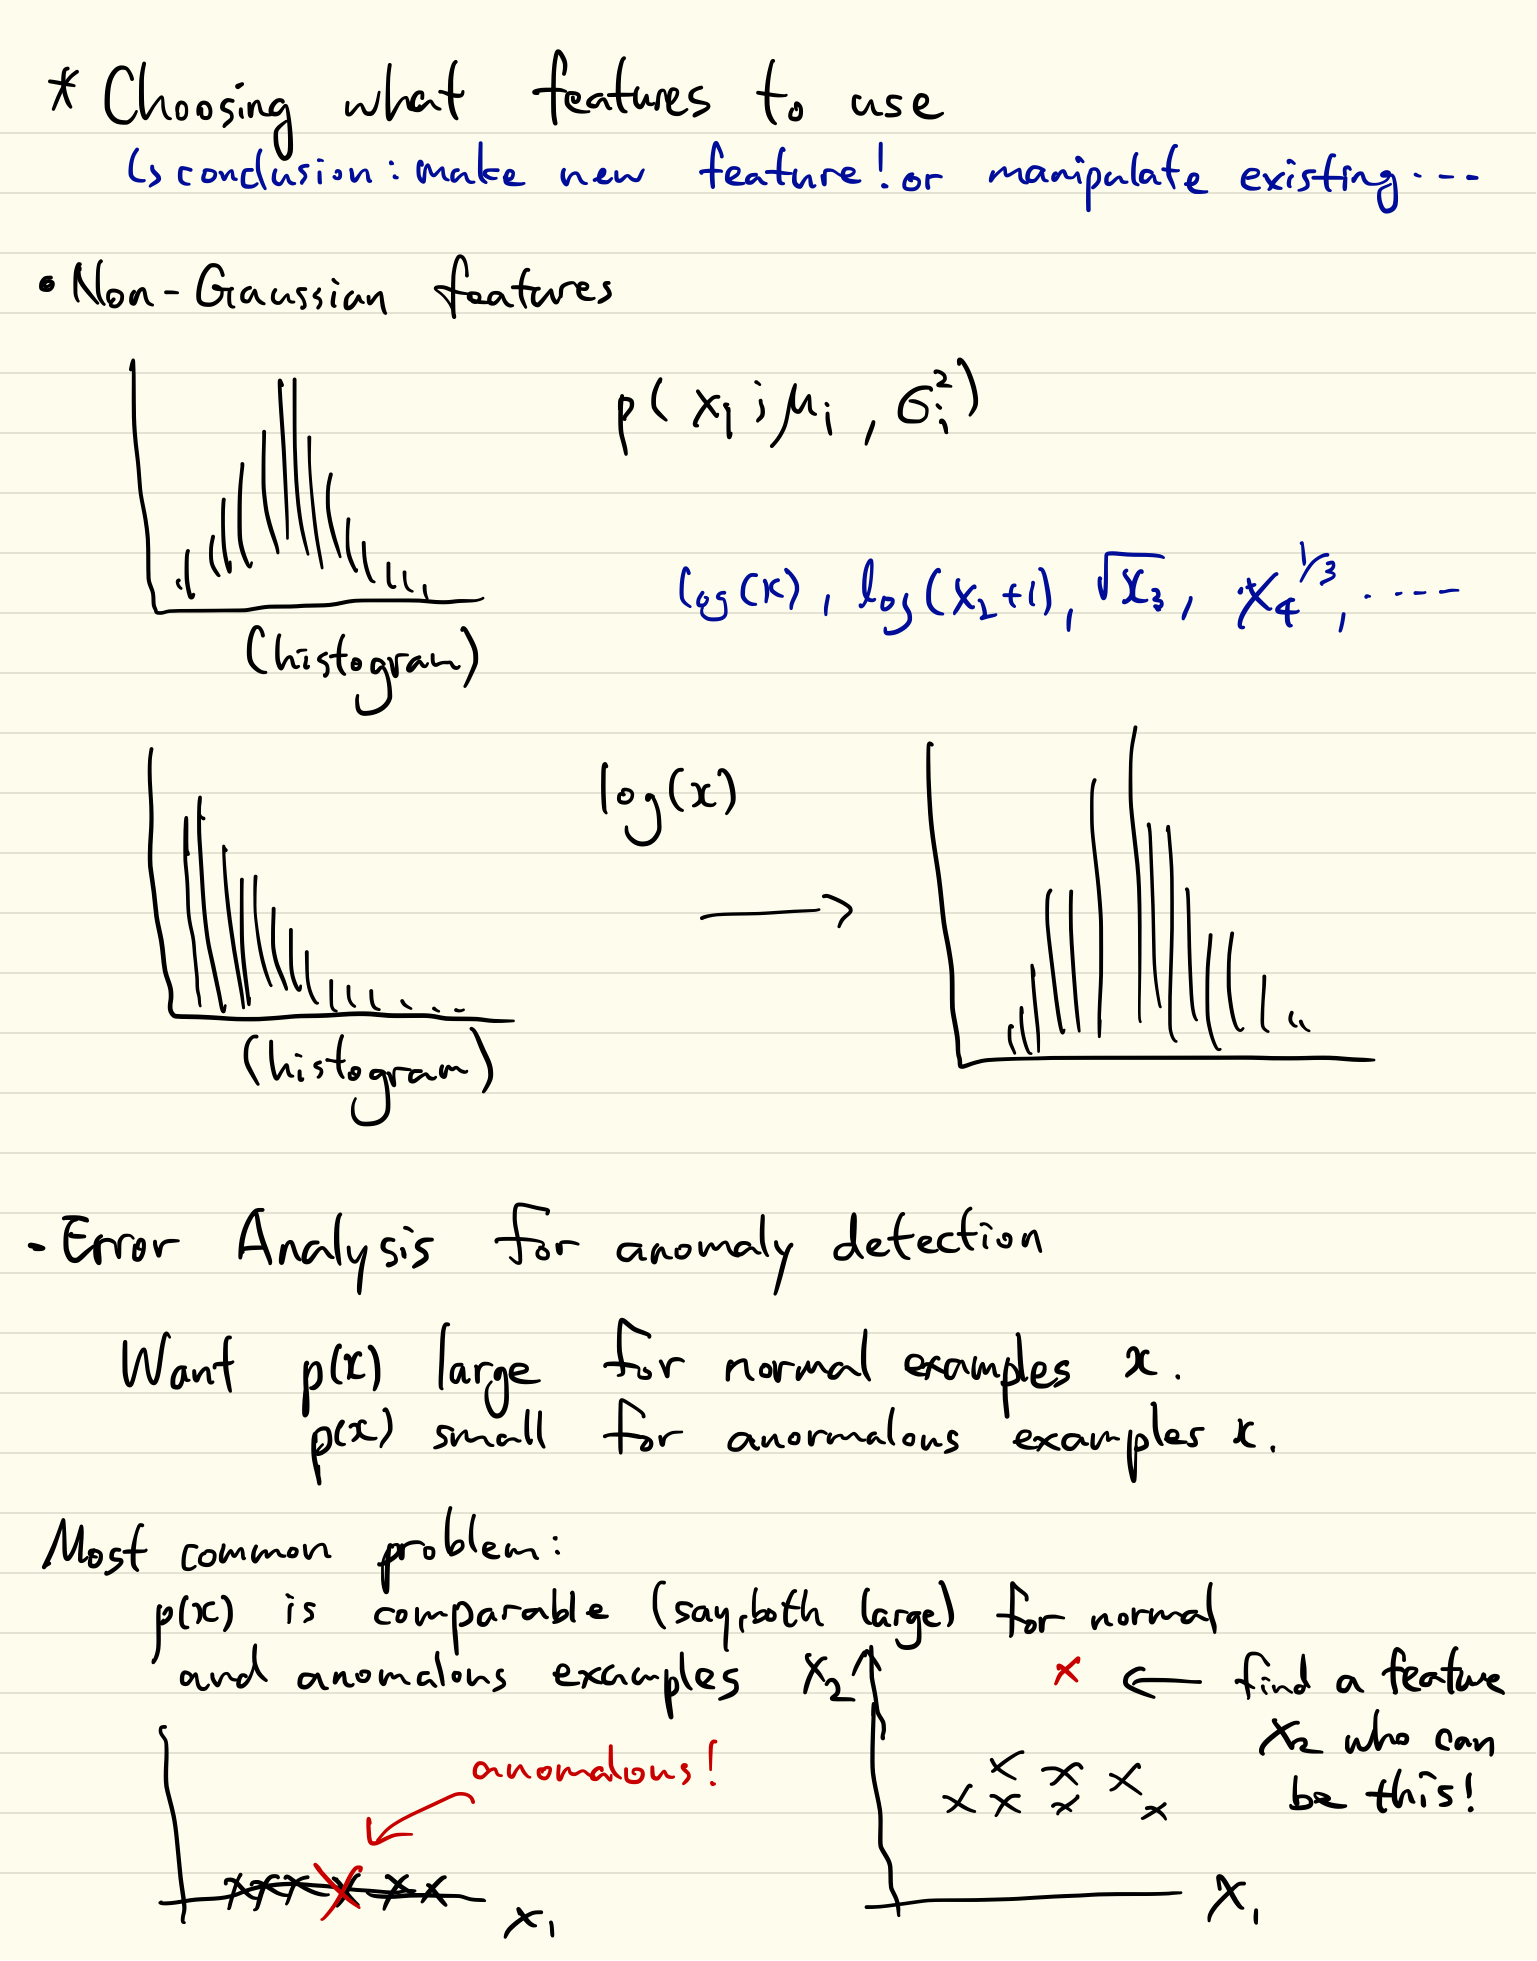 * Choosing what features to use
↳ conclusion: make new feature! or manipulate existing....
• Non-Gaussian features
p(x₁; μᵢ, σᵢ²)
log(x), log(x₂+1), √x₃, x₄^1/3, .....
(histogram)
log(x)
→
(histogram)
- Error Analysis for anomaly detection
Want p(x) large for normal examples x.
p(x) small for anormalous examples x.
Most common problem:
p(x) is comparable (say, both large) for normal
and anomalous examples
anomalous!
x₁
x₂
x ← find a feature
x₂ who can
be this!
x₁